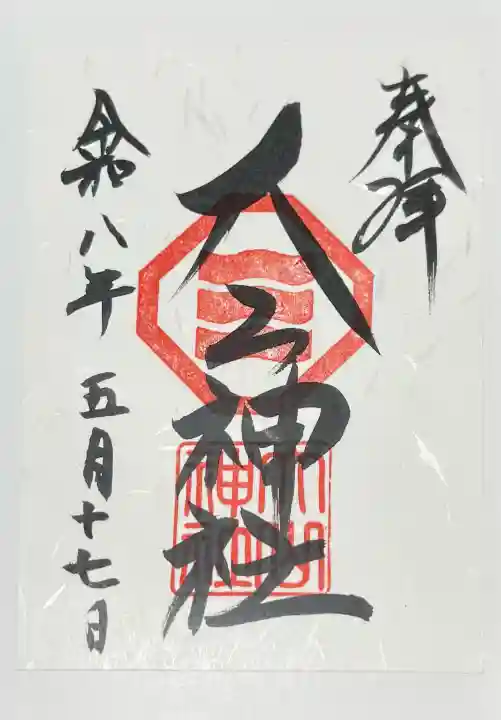 奉拝
大山神社
大山
神社
令和八年 五月十七日